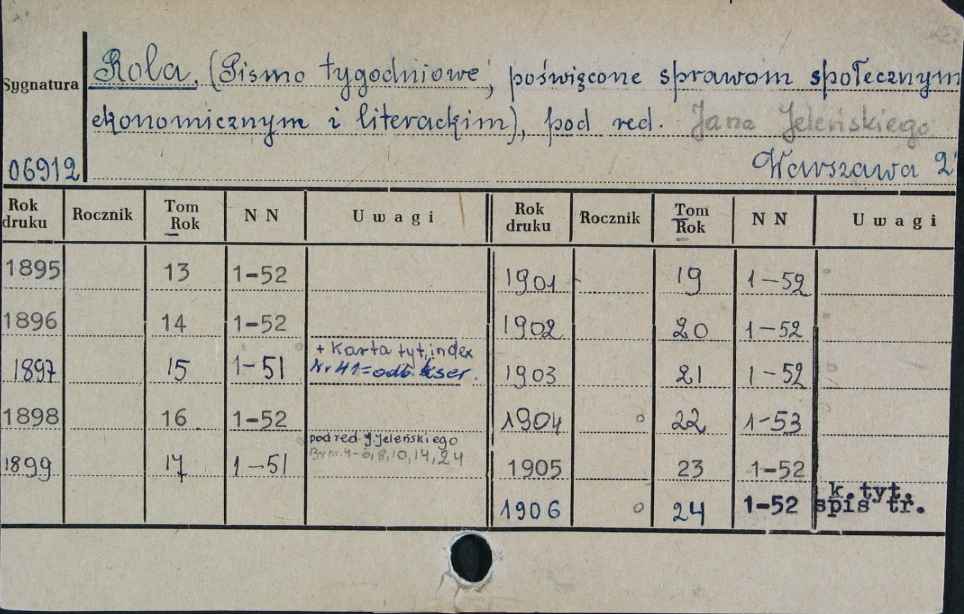 Sygnatura
Rola. (Pismo tygodniowe, poświęcone sprawom społecznym
ekonomicznym i literackim), pod red. Jana Jeleńskiego
06912 Warszawa 2
Rok druku Rocznik Tom Rok NN Uwagi Rok druku Rocznik Tom Rok NN Uwagi
1895 13 1-52 1901 19 1-52
1896 14 1-52 1902 20 1-52
1897 15 1-51 + Karta tyt, index
Nr 41 = odb. kser. 1903 21 1-52
1898 16 1-52 1904 22 1-53
1899 17 1-51 pod red. J. Jeleńskiego
8, 10, 14, 24 1905 23 1-52
1906 24 1-52 k. tyt.
spis tr.